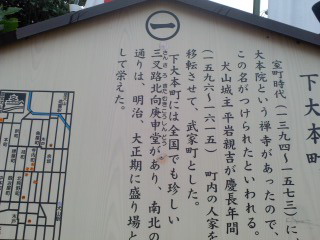 一
下大本町
室町時代(一三九四〜一五七三)に
大本院という禅寺があったので、
この名がつけられたといわれる。
犬山城主平岩親吉が慶長年間
(一五九六〜一六一五) 町内の人家を
移転させて、武家町とした。
下大本町には全国でも珍しい
三又路北向庚申堂があり、南北の
通りは、明治、大正期に盛り場と
して栄えた。